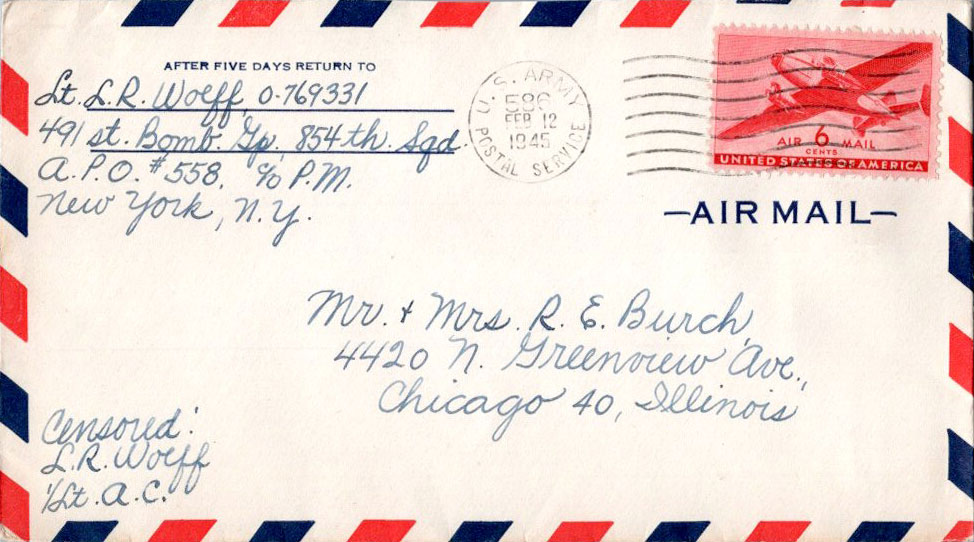 AFTER FIVE DAYS RETURN TO
Lt. L.R. Wolff O-769331
491 st. Bomb. Gp. 854th. Sqd.
A.P.O. #558, c/o P.M.
New York, N.Y.
U.S. ARMY
586
FEB 12
1945
POSTAL SERVICE
AIR 6 MAIL
CENTS
UNITED STATES OF AMERICA
—AIR MAIL—
Mr. + Mrs. R. E. Burch,
4420 N. Greenview Ave.,
Chicago 40, Illinois
Censored:
L.R. Wolff
1/Lt. A.C.